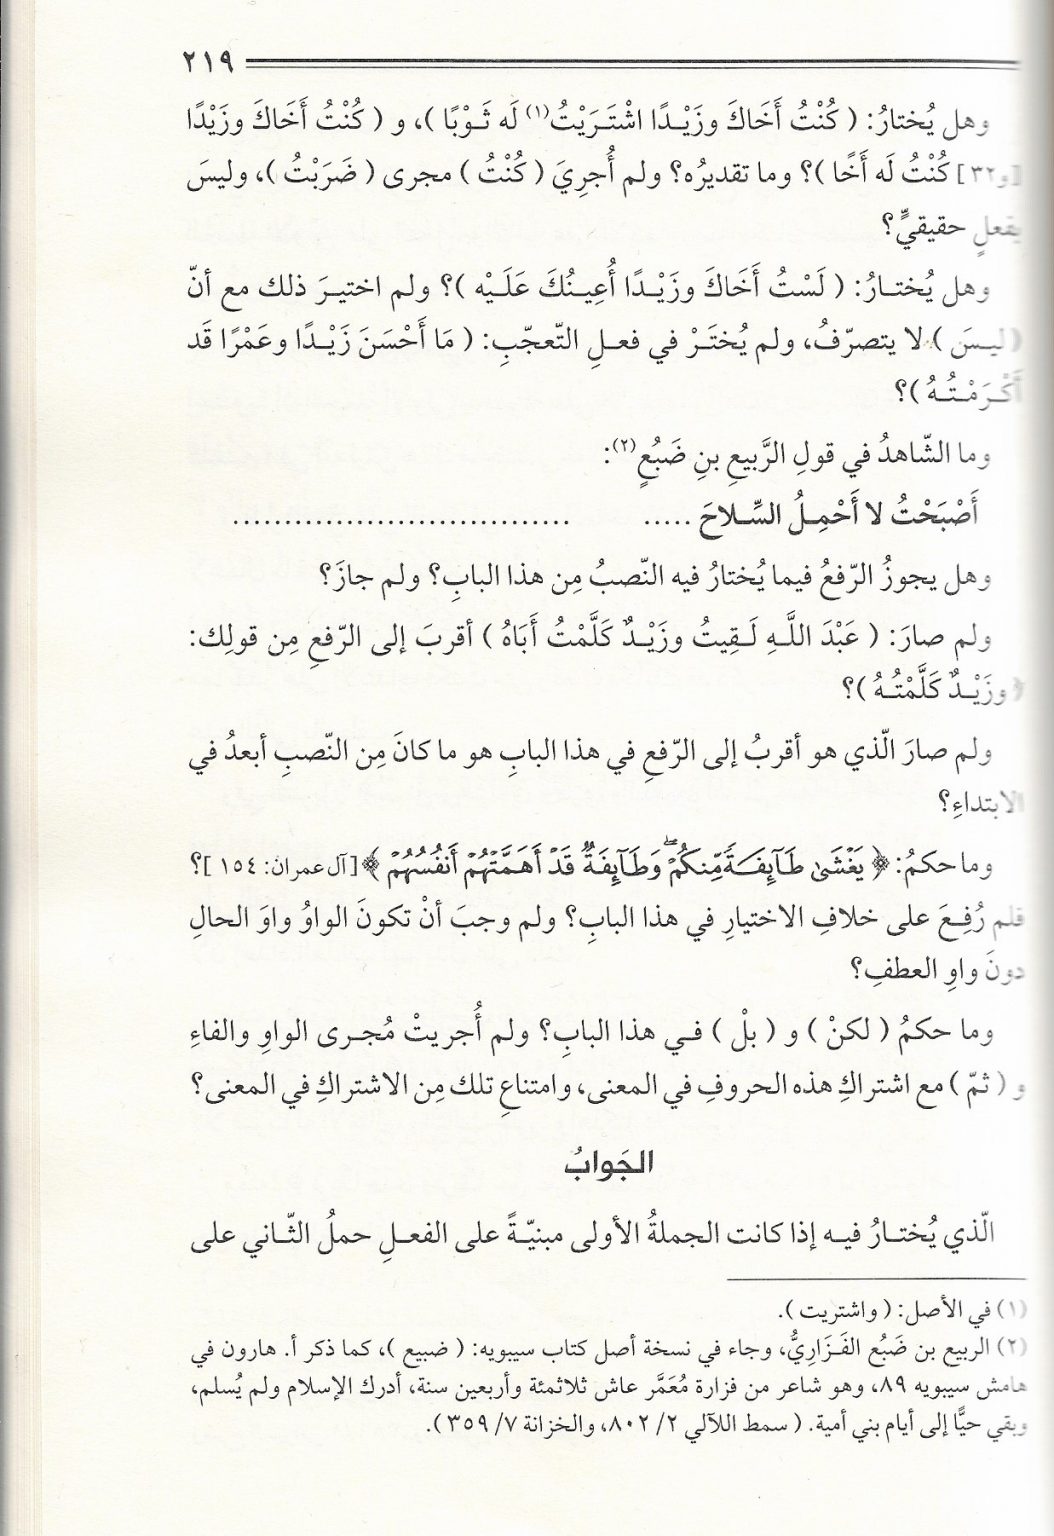 ٢١٩
وهل يُختارُ: ( كُنْتُ أَخَاكَ وزَيْـدًا اشْتَـرَيْتُ(١) لَه ثَـوْبًا )، و ( كُنْتُ أَخَاكَ وزَيْدًا
[و٣٢] كُنْتُ لَه أَخًا )؟ وما تقديرُه؟ ولم أُجرِيَ ( كُنْتُ ) مجرى ( ضَرَبْتُ )، وليسَ
بفعلٍ حقيقيٍّ؟
وهل يُختـارُ: ( لَسْتُ أَخَاكَ وزَيْـدًا أُعِيـنُكَ عَلَـيْه )؟ ولم اختيـرَ ذلك مع أنّ
( ليـسَ ) لا يتصرّفُ، ولم يُختَـرْ في فعـلِ التّعجّبِ: ( مَا أَحْسَنَ زَيْـدًا وعَمْرًا قَد
أَكْـرَمْـتُـهُ )؟
وما الشّاهدُ في قولِ الرَّبيعِ بنِ ضَبُعٍ(٢):
أَصْبَحْتُ لا أَحْمِـلُ السِّـلاحَ ..... ................................
وهل يجوزُ الرّفعُ فيما يُختارُ فيه النّصبُ مِن هذا البابِ؟ ولم جازَ؟
ولم صارَ: ( عَبْدَ اللَّـهِ لَـقِيتُ وزَيْـدٌ كَلَّمْتُ أَبَاهُ ) أقربَ إلى الرّفعِ مِن قولِك:
( وزَيْـدٌ كَلَّمْتُـهُ )؟
ولم صارَ الّذي هو أقربُ إلى الرّفعِ في هذا البابِ هو ما كانَ مِن النّصبِ أبعدُ في
الابتداءِ؟
وما حكمُ: ﴿ يَغْشَىٰ طَآئِفَـةً مِّنكُمْ ۖ وَطَآئِفَةٌ قَدْ أَهَمَّتْهُمْ أَنفُسُهُمْ ﴾ [آل عمران: ١٥٤ ]؟
فلم رُفِـعَ على خلافِ الاختيارِ في هذا البابِ؟ ولم وجبَ أنْ تكونَ الواوُ واوَ الحالِ
دونَ واوِ العطفِ؟
وما حكمُ ( لكنْ ) و ( بلْ ) فـي هذا البابِ؟ ولم أُجريتْ مُجـرى الواوِ والفاءِ
و ( ثمّ ) مع اشتراكِ هذه الحروفِ في المعنى، وامتناعِ تلك مِن الاشتراكِ في المعنى؟
الجَوابُ
الّذي يُختـارُ فيـه إذا كانت الجملةُ الأولى مبنيّـةً على الفعـلِ حملُ الثّـاني على
(١) في الأصل: ( واشتريت ).
(٢) الربيع بن ضَبُع الفَـزَارِيُّ، وجاء في نسخة أصل كتاب سيبويه: ( ضبيع )، كما ذكر أ. هارون في
هامش سيبويه ٨٩، وهو شاعر من فزارة مُعَمَّر عاش ثلاثمئة وأربعين سنة، أدرك الإسلام ولم يُسلم،
وبقي حيًّا إلى أيام بني أمية. ( سمط اللآلي ٢/ ٨٠٢، والخزانة ٧/ ٣٥٩ ).